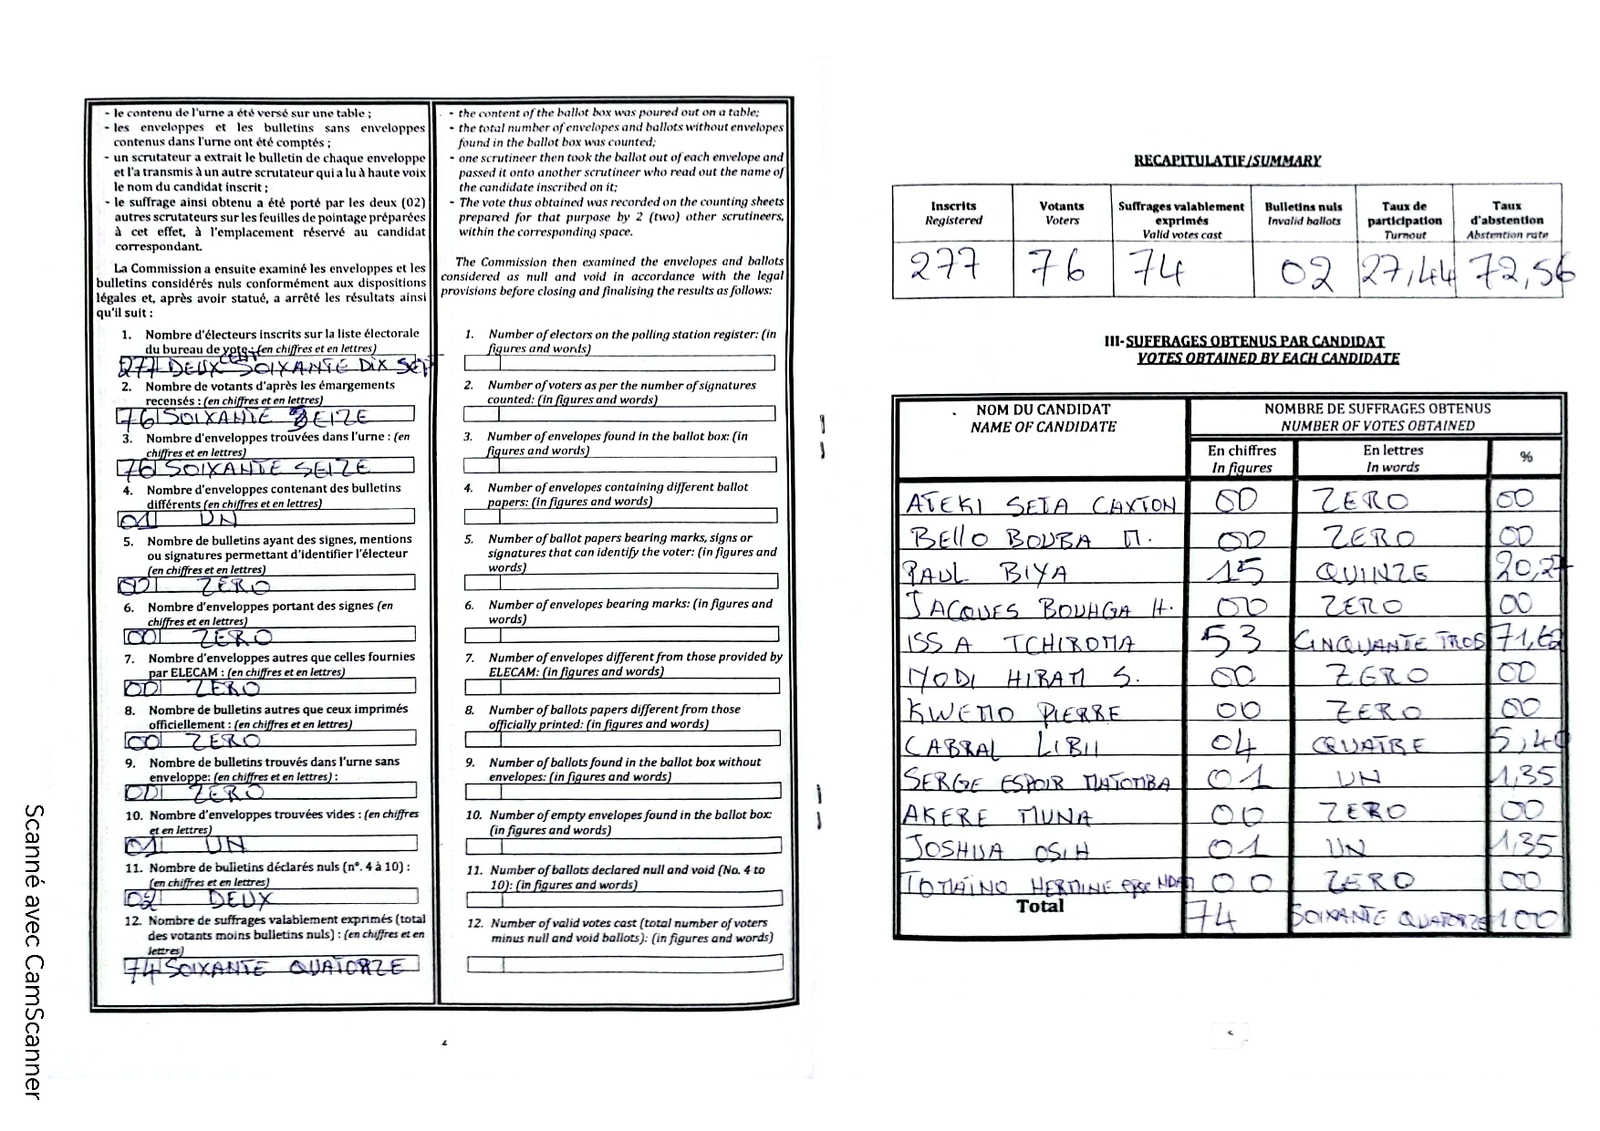 - le contenu de l'urne a été versé sur une table ;
- les enveloppes et les bulletins sans enveloppes
contenus dans l'urne ont été comptés ;
- un scrutateur a extrait le bulletin de chaque enveloppe
et l'a transmis à un autre scrutateur qui a lu à haute voix
le nom du candidat inscrit ;
- le suffrage ainsi obtenu a été porté par les deux (02)
autres scrutateurs sur les feuilles de pointage préparées
à cet effet, à l'emplacement réservé au candidat
correspondant.
La Commission a ensuite examiné les enveloppes et les
bulletins considérés nuls conformément aux dispositions
légales et, après avoir statué, a arrêté les résultats ainsi
qu'il suit :
1. Nombre d'électeurs inscrits sur la liste électorale
du bureau de vote : (en chiffres et en lettres)
277 DEUX CENT SOIXANTE DIX SEPT
2. Nombre de votants d'après les émargements
recensés : (en chiffres et en lettres)
76 SOIXANTE SEIZE
3. Nombre d'enveloppes trouvées dans l'urne : (en
chiffres et en lettres)
76 SOIXANTE SEIZE
4. Nombre d'enveloppes contenant des bulletins
différents (en chiffres et en lettres)
01 UN
5. Nombre de bulletins ayant des signes, mentions
ou signatures permettant d'identifier l'électeur
(en chiffres et en lettres)
00 ZERO
6. Nombre d'enveloppes portant des signes (en
chiffres et en lettres)
00 ZERO
7. Nombre d'enveloppes autres que celles fournies
par ELECAM : (en chiffres et en lettres)
00 ZERO
8. Nombre de bulletins autres que ceux imprimés
officiellement : (en chiffres et en lettres)
00 ZERO
9. Nombre de bulletins trouvés dans l'urne sans
enveloppe: (en chiffres et en lettres) :
00 ZERO
10. Nombre d'enveloppes trouvées vides : (en chiffres
et en lettres)
01 UN
11. Nombre de bulletins déclarés nuls (n°. 4 à 10) :
(en chiffres et en lettres)
02 DEUX
12. Nombre de suffrages valablement exprimés (total
des votants moins bulletins nuls) : (en chiffres et en
lettres)
74 SOIXANTE QUATORZE
- the content of the ballot box was poured out on a table;
- the total number of envelopes and ballots without envelopes
found in the ballot box was counted;
- one scrutineer then took the ballot out of each envelope and
passed it onto another scrutineer who read out the name of
the candidate inscribed on it;
- The vote thus obtained was recorded on the counting sheets
prepared for that purpose by 2 (two) other scrutineers,
within the corresponding space.
The Commission then examined the envelopes and ballots
considered as null and void in accordance with the legal
provisions before closing and finalising the results as follows:
1. Number of electors on the polling station register: (in
figures and words)
2. Number of voters as per the number of signatures
counted: (in figures and words)
3. Number of envelopes found in the ballot box: (in
figures and words)
4. Number of envelopes containing different ballot
papers: (in figures and words)
5. Number of ballot papers bearing marks, signs or
signatures that can identify the voter: (in figures and
words)
6. Number of envelopes bearing marks: (in figures and
words)
7. Number of envelopes different from those provided by
ELECAM: (in figures and words)
8. Number of ballots papers different from those
officially printed: (in figures and words)
9. Number of ballots found in the ballot box without
envelopes: (in figures and words)
10. Number of empty envelopes found in the ballot box:
(in figures and words)
11. Number of ballots declared null and void (No. 4 to
10): (in figures and words)
12. Number of valid votes cast (total number of voters
minus null and void ballots): (in figures and words)
RECAPITULATIF/SUMMARY
Inscrits Votants Suffrages valablement Bulletins nuls Taux de Taux
Registered Voters exprimés Invalid ballots participation d'abstention
Valid votes cast Turnout Abstention rate
277 76 74 02 27,44 72,56
III-SUFFRAGES OBTENUS PAR CANDIDAT
VOTES OBTAINED BY EACH CANDIDATE
NOM DU CANDIDAT NOMBRE DE SUFFRAGES OBTENUS
NAME OF CANDIDATE NUMBER OF VOTES OBTAINED
En chiffres En lettres %
In figures In words
ATEKI SETA CAXTON 00 ZERO 00
BELLO BOUBA M. 00 ZERO 00
PAUL BIYA 15 QUINZE 20,27
JACQUES BOUHGA H. 00 ZERO 00
ISSA TCHIROMA 53 CINQUANTE TROIS 71,62
IYODI HIRAM S. 00 ZERO 00
KWEMO PIERRE 00 ZERO 00
CABRAL LIBII 04 QUATRE 5,40
SERGE ESPOIR MATOMBA 01 UN 1,35
AKERE MUNA 00 ZERO 00
JOSHUA OSIH 01 UN 1,35
TOMAÏNO HERMINE epse NDAM 00 ZERO 00
Total 74 SOIXANTE QUATORZE 100
Scanné avec CamScanner